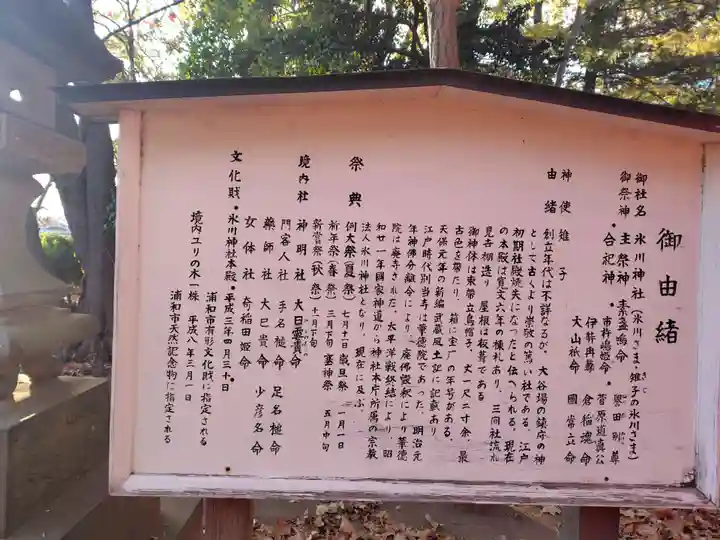 御由緒
御社名 氷川神社(氷川さま、雉子の氷川さま)
御祭神・主祭神 素盞嗚命
・合祀神 市杵嶋姫命・菅原道真公
伊弉冉尊 倉稲魂命
大山祇命 國常立命
神使 雉子
由緒 創立年代は不詳なるが、大谷場の鎮守の神
として古くより崇敬の篤い社である。江戸
初期社殿焼失になったと伝へられる。現在
の本殿は寛文六年の棟札あり、三間社流れ
見古棚造り 屋根は板葺である
御神体は束帯立烏帽子、丈一尺二寸余、最
古色を帯たり、箱に宝厂の年号がある。
天保元年の新編武蔵風土記に記載あり
江戸時代別当寺は華徳院であった。明治元
年神佛分離令により、廃佛毀釈により華徳
院は廃寺された。太平洋戦終結により、昭
和廿一年國家神道から神社本庁所属の宗教
法人氷川神社となり、現在に及ぶ。
祭典
例大祭(夏祭)七月十一日 歳旦祭 一月一日
祈年祭(春祭)三月下旬 塞神祭 五月中旬
新嘗祭(秋祭)十一月下旬
境内社 神明社 大日孁貴命
門客人社 手名槌命 足名槌命
藥師社 大巳貴命 少彦名命
女体社 奇稲田姫命
文化財・氷川神社本殿・平成三年四月三十日、
浦和市有形文化財に指定される
境内ユリの木一株 平成八年三月一日
浦和市天然記念物に指定される